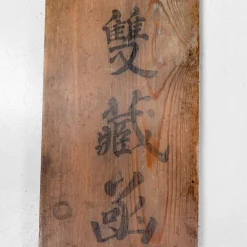 雙藏函